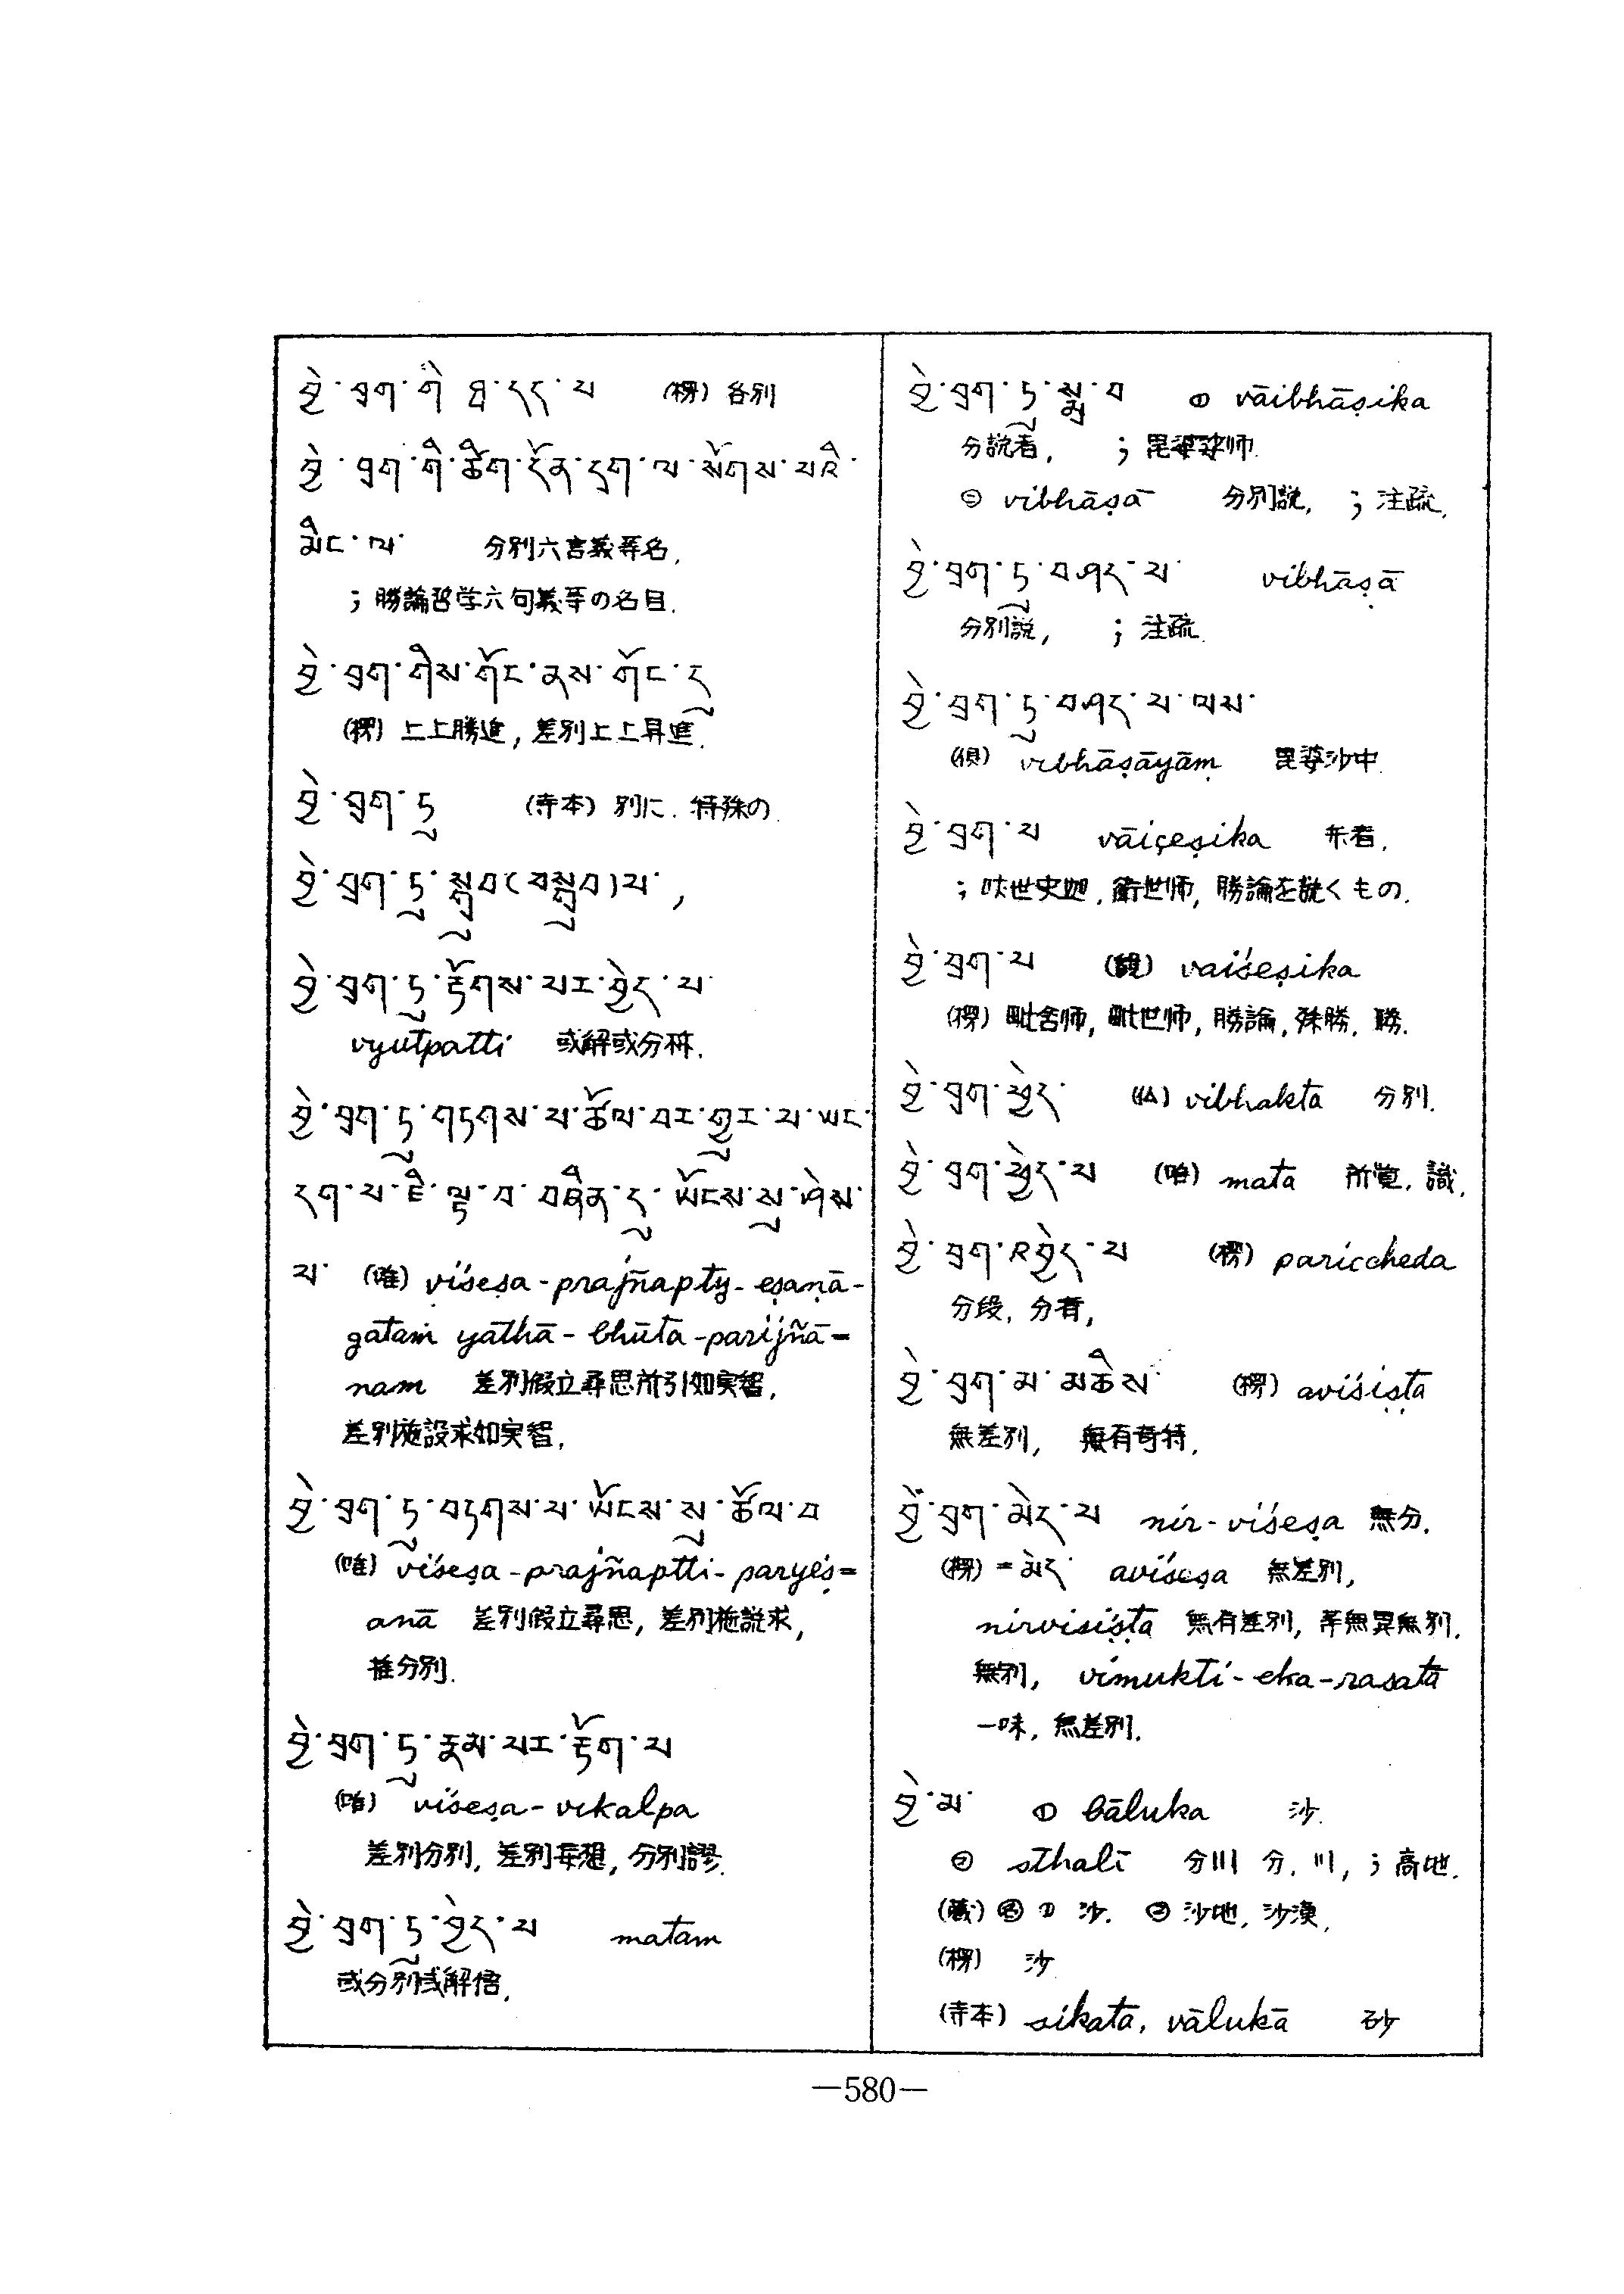 བྱེ་བྲག་གི་ཐ་དད་པ (楞) 各別
བྱེ་བྲག་གི་ཚིག་དོན་དྲུག་ལ་སོགས་པའི་
མིང་ལ་ 分別六言義等名.
; 勝論哲学六句義等の名目.
བྱེ་བྲག་གིས་གོང་ནས་གོང་དུ
(楞) 上上勝進, 差別上上昇進.
བྱེ་བྲག་ཏུ (寺本) 別に. 特殊の.
བྱེ་བྲག་ཏུ་སྒྲུབ(བསྒྲུབ)པ་,
བྱེ་བྲག་ཏུ་རྟོགས་པར་བྱེད་པ་
vyutpatti 或解或分別.
བྱེ་བྲག་ཏུ་གདགས་པ་ཚོལ་བར་གྱུར་པ་ཡང་
དག་པ་ཇི་ལྟ་བ་བཞིན་དུ་ཡོངས་སུ་ཤེས་
པ་ (唯) viśeṣa-prajñapty-eṣaṇā-
gataṁ yathā-bhūta-parijñā=
nam 差別假立尋思所引如実智,
差別施設求如実智,
བྱེ་བྲག་ཏུ་བདགས་པ་ཡོངས་སུ་ཚོལ་བ
(唯) viśeṣa-prajñaptti-paryeṣ=
anā 差別假立尋思, 差別施説求,
推分別.
བྱེ་བྲག་ཏུ་རྣམ་པར་རྟོག་པ
(唯) viśeṣa-vikalpa
差別分別, 差別妄想, 分別謬.
བྱེ་བྲག་ཏུ་བྱེད་པ matam
或分別或解悟.
བྱེ་བྲག་ཏུ་སྨྲ་བ ① vāibhāṣika
分説者, ; 毘婆娑师.
② vibhāṣā 分別説, ; 注疏.
བྱེ་བྲག་ཏུ་བཤད་པ་ vibhāṣā
分別説, ; 注疏.
བྱེ་བྲག་ཏུ་བཤད་པ་ལས་
(倶) vibhāṣāyāṃ 毘婆沙中.
བྱེ་བྲག་པ vāiçeṣika 朩者,
; 吠世史迦, 衛世师, 勝論を説くもの.
བྱེ་བྲག་པ vaiśeṣika
(楞) 毗舍师, 毗世师, 勝論, 殊勝, 勝.
བྱེ་བྲག་ཕྱེད་ vibhakta 分別.
བྱེ་བྲག་ཕྱེད་པ (唯) mata 所覚, 識.
བྱེ་བྲག་འབྱེད་པ (楞) pariccheda
分段, 分有,
བྱེ་བྲག་མ་མཆིས་ (楞) aviśiṣṭa
無差別, 無有奇特.
བྱེ་བྲག་མེད་པ nir-viśeṣa 無分.
(楞) =མེད་ aviśeṣa 無差別,
nirviśiṣṭa 無有差別, 等無異無別.
無別, vimukti-eka-rasatā
一味, 無差別.
བྱེ་མ་ ① bāluka 沙.
② sthalī 分川 分, 川, ; 高地.
(蔵) ㊔ ① 沙. ② 沙地, 沙漠.
(楞) 沙
(寺本) sikatā, vālukā 砂
—580—